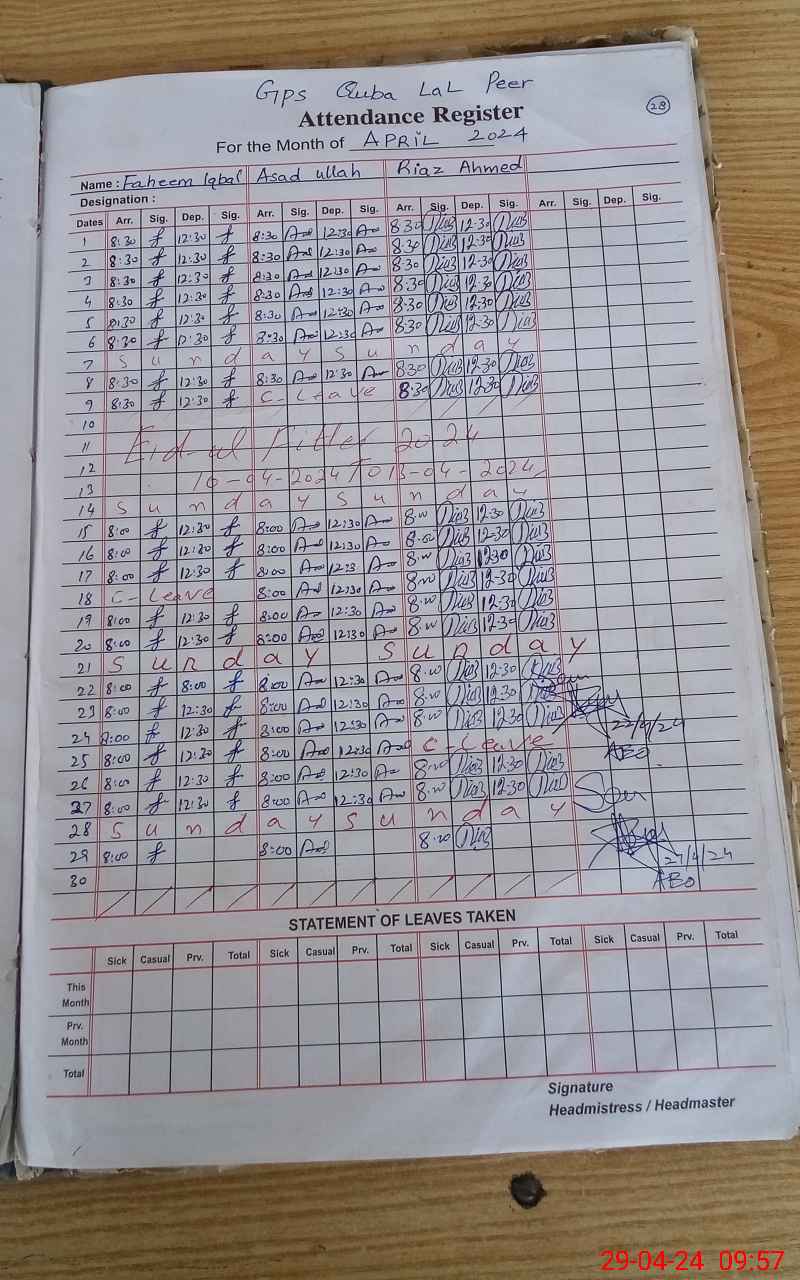 GPS Quba LaL Peer
28
Attendance Register
For the Month of APRiL 2024
Name : Faheem Iqbal Asad ullah Riaz Ahmed
Designation :
Dates Arr. Sig. Dep. Sig. Arr. Sig. Dep. Sig. Arr. Sig. Dep. Sig. Arr. Sig. Dep. Sig.
1 8:30 12:30 8:30 12:30 8:30 12:30
2 8:30 12:30 8:30 12:30 8:30 12:30
3 8:30 12:30 8:30 12:30 8:30 12:30
4 8:30 12:30 8:30 12:30 8:30 12:30
5 8:30 12:30 8:30 12:30 8:30 12:30
6 8:30 12:30 8:30 12:30 8:30 12:30
7 S u n d a y S u n d a y
8 8:30 12:30 8:30 12:30 8:30 12:30
9 8:30 12:30 C-Leave 8:30 12:30
10
11 Eid-ul Fitter 2024
12
13 10-04-2024 To 13-04-2024
14 S u n d a y S u n d a y
15 8:00 12:30 8:00 12:30 8:00 12:30
16 8:00 12:30 8:00 12:30 8:00 12:30
17 8:00 12:30 8:00 12:3 8:00 12:30
18 C-Leave 8:00 12:30 8:00 12:30
19 8:00 12:30 8:00 12:30 8:00 12:30
20 8:00 12:30 8:00 12:30 8:00 12:30
21 S u n d a y S u n d a y
22 8:00 8:00 8:00 12:30 8:00 12:30
23 8:00 12:30 8:00 12:30 8:00 12:30
24 8:00 12:30 8:00 12:30 8:00 12:30 22/4/24
25 8:00 12:30 8:00 12:30 C-Leave AEO
26 8:00 12:30 8:00 12:30 8:00 12:30
27 8:00 12:30 8:00 12:30 8:00 12:30
28 S u n d a y S u n d a y
29 8:00 8:00 8:00
30 AEO
STATEMENT OF LEAVES TAKEN
Sick Casual Prv. Total Sick Casual Prv. Total Sick Casual Prv. Total Sick Casual Prv. Total
This
Month
Prv.
Month
Total
Signature
Headmistress / Headmaster
29-04-24 09:57